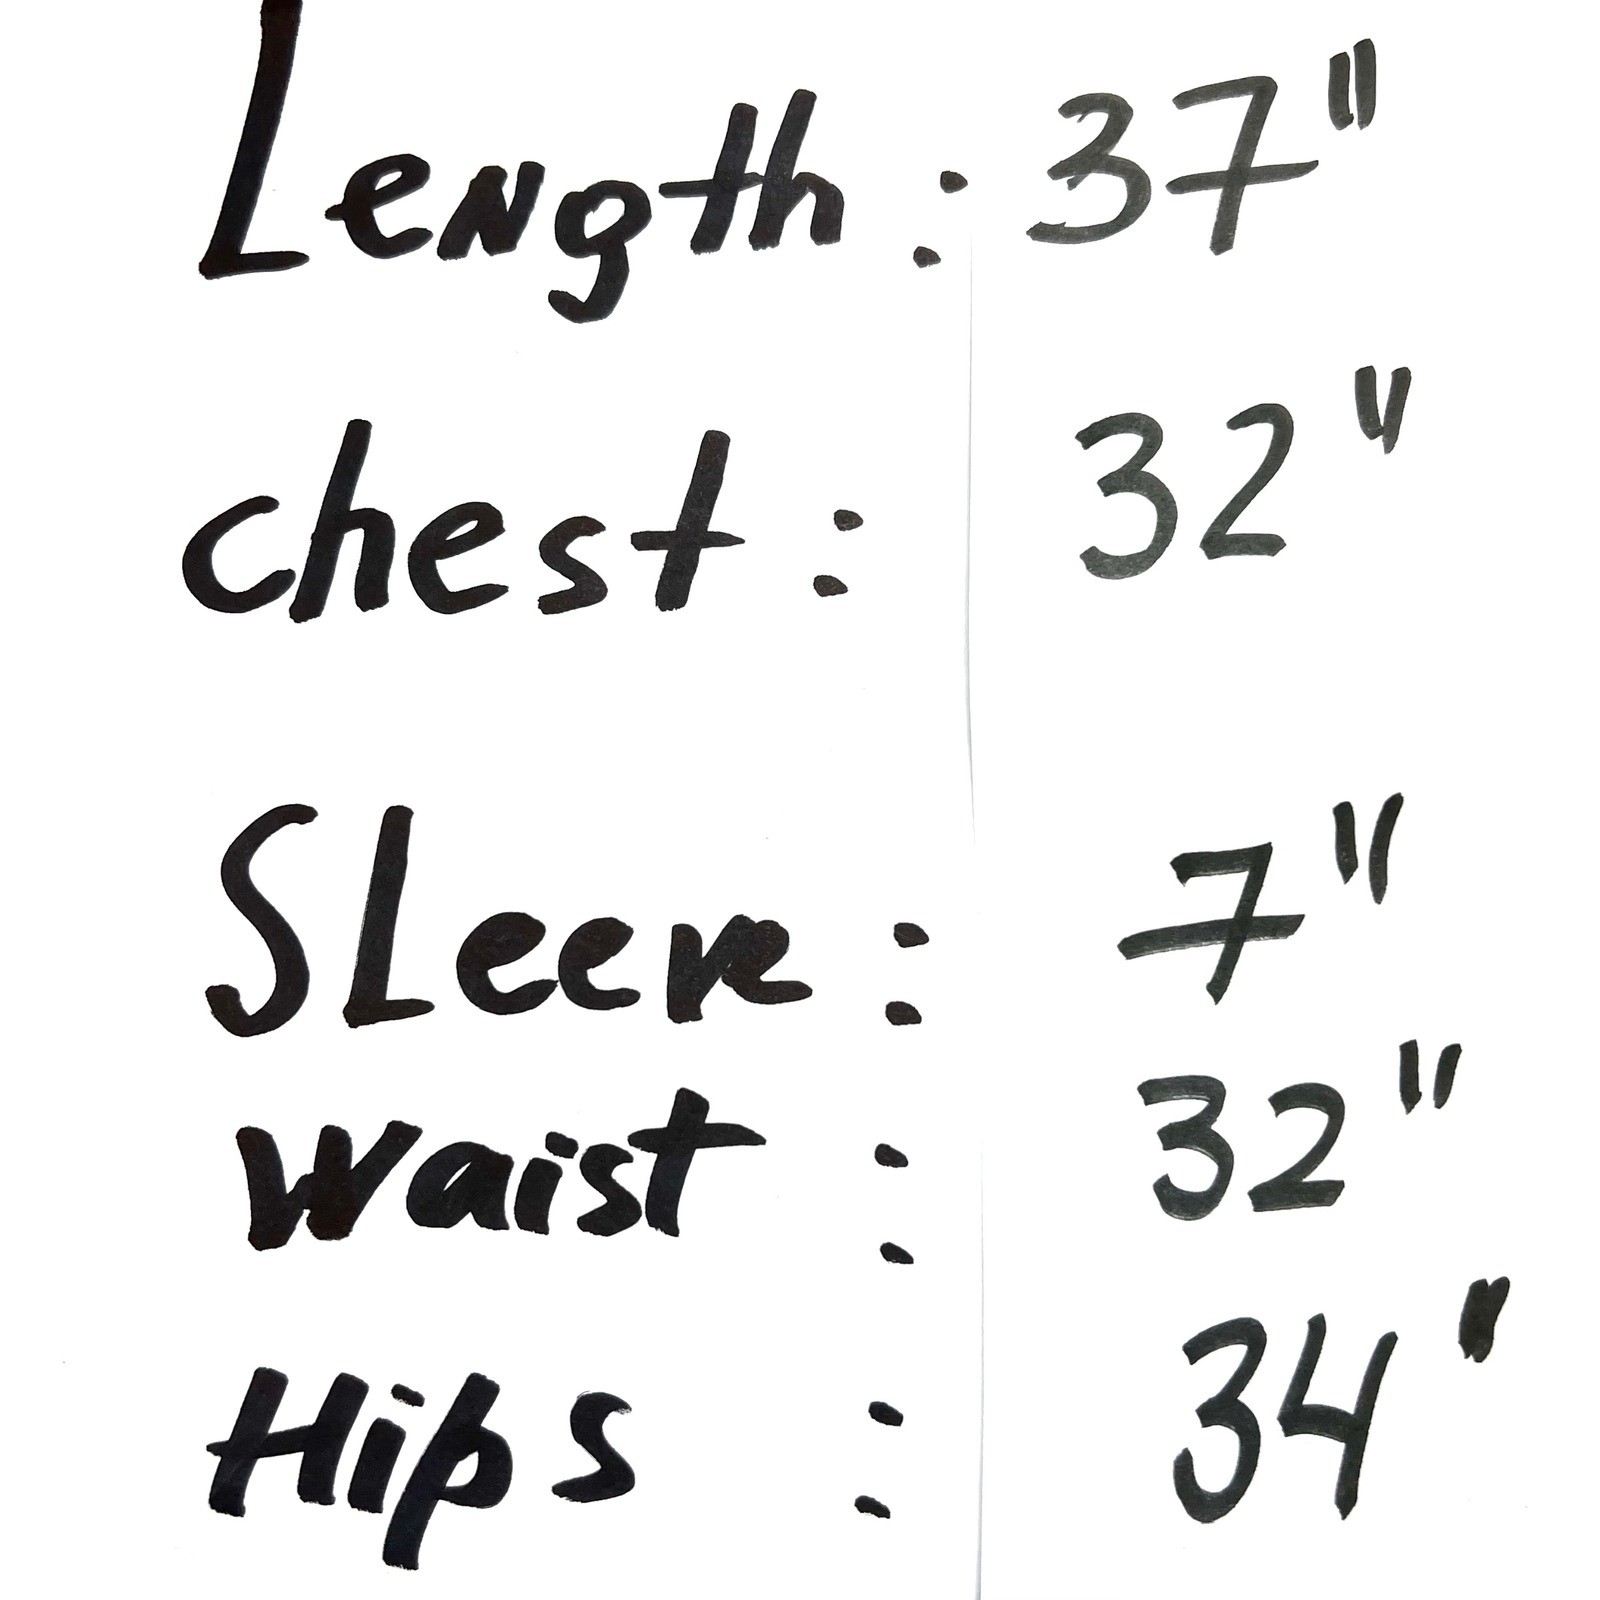 Length : 37"
chest : 32"
SLeeve : 7"
waist : 32"
Hips : 34"